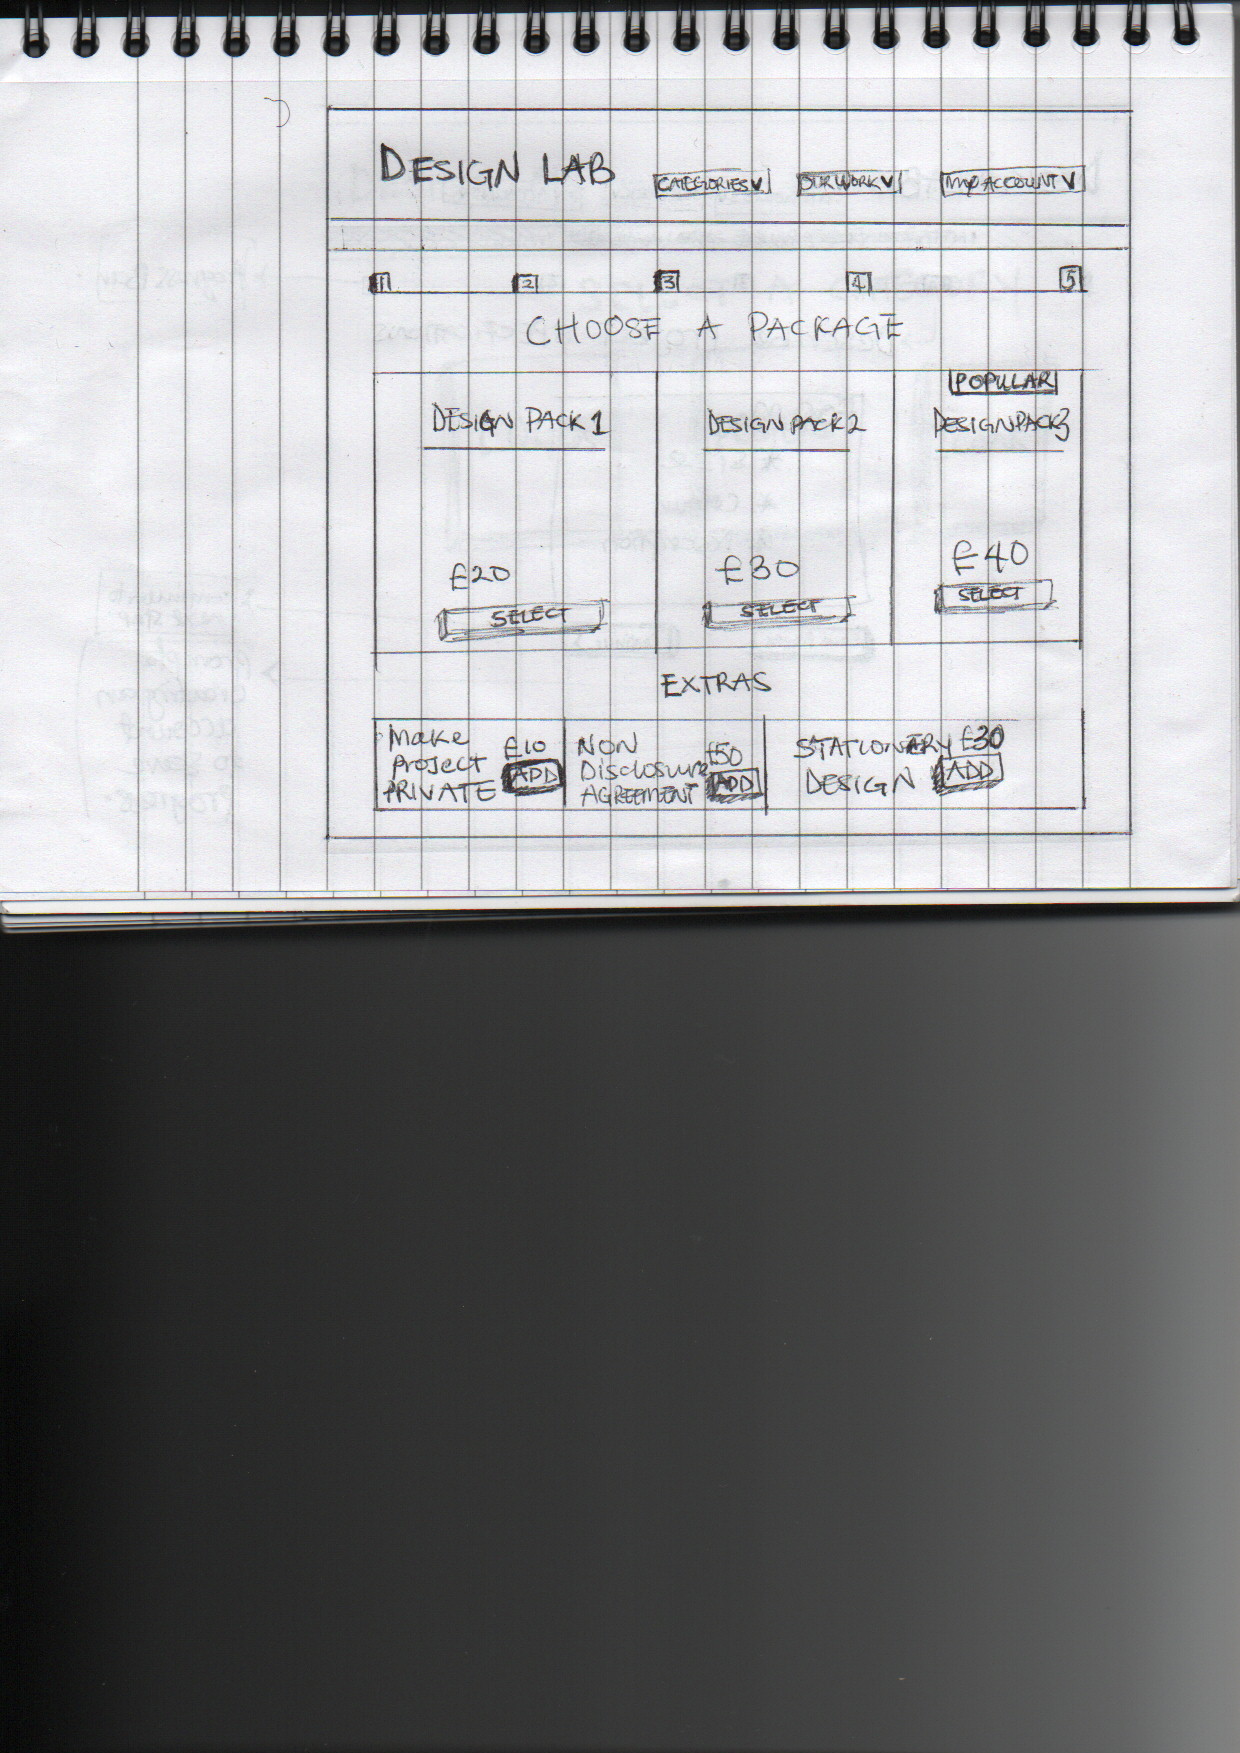 DESIGN LAB
CATEGORIES V
OUR WORK V
MY ACCOUNT V
1 2 3 4 5
CHOOSE A PACKAGE
POPULAR
DESIGN PACK 1
DESIGN PACK 2
DESIGN PACK 3
£20
£30
£40
SELECT
SELECT
SELECT
EXTRAS
Make
Project
PRIVATE
£10
ADD
NON
Disclosure
AGREEMENT
£50
ADD
STATIONERY
DESIGN
£30
ADD